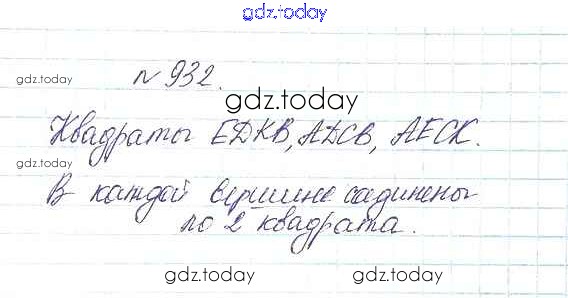 gdz.today
gdz.today
№ 932.
gdz.today
Квадраты EDKB, ADCB, AECK.
gdz.today
В каждой вершине садинены
по 2 квадрата.
gdz.today
gdz.today